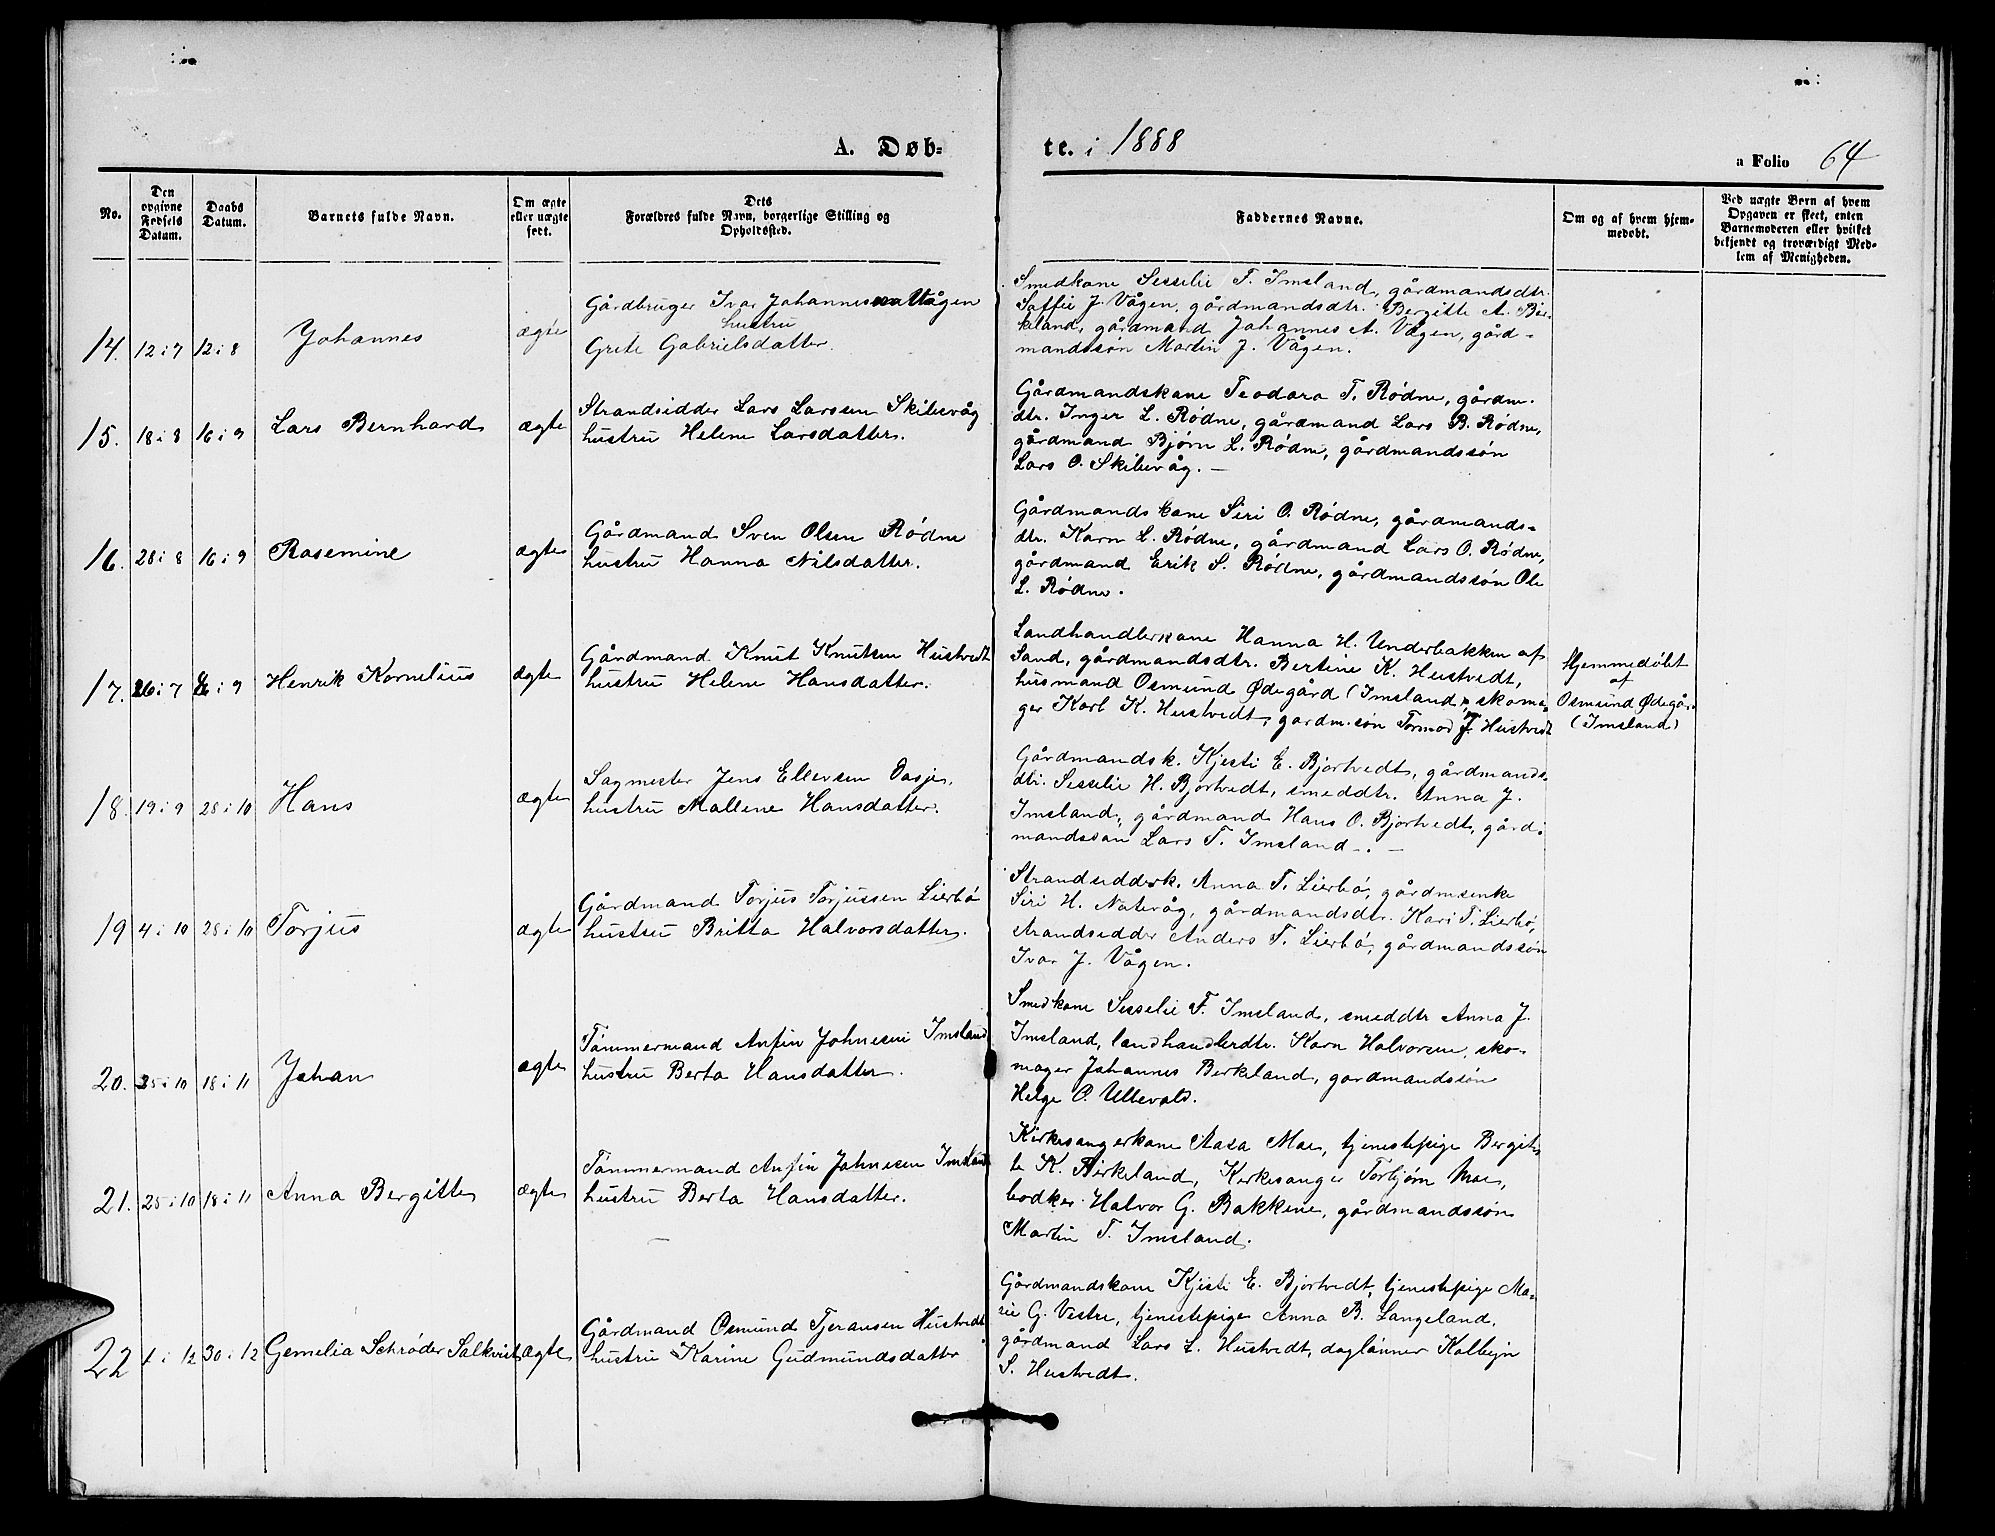 A. Døb-
te. i 1888
a Folio 64
No.
Den
opgivne
Fødsels
Datum.
Daabs
Datum.
Barnets fulde Navn.
Om ægte
eller uægte
født.
Dets
Forældres fulde Navn, borgerlige Stilling og
Opholdssted.
Faddernes Navne.
Om og af hvem hjem-
medøbt.
Ved uægte Børn af hvem
Opgaven er skeet, enten
Barnemoderen eller hvilket
bekjendt og troværdigt Med-
lem af Menigheden.
14. 12 i 7 12 i 8 Johannes ægte
Gårdbruger Ivar Johannessen Vågen
hustru
Grete Gabrielsdatter.
Smedkone Sesselie T. Imsland, gårdmandsdtr.
Soffie J. Vågen, gårdmandsdtr. Bergitte A. Bir-
keland, gårdmand Johannes A. Vågen, gård-
mandssøn Martin J. Vågen.
15. 18 i 8 16 i 9 Lars Bernhard ægte
Strandsidder Lars Larssen Skibevåg
hustru Helene Larsdatter.
Gårdmandskone Teodora T. Rødne, gårdm.
dtr. Inger L. Rødne, gårdmand Lars B. Rødne,
gårdmand Bjørn L. Rødne, gårdmandssøn
Lars O. Skibevåg. -
16. 28 i 8 16 i 9 Rasemine ægte
Gårdmand Sven Olsen Rødne
hustru Hanna Nilsdatter.
Gårdmandskone Siri O. Rødne, gårdmands-
dtr. Karn L. Rødne, gårdmand Lars O. Rødne,
gårdmand Erik S. Rødne, gårdmandssøn Ole
L. Rødne.
17. 26 i 7 i 9 Henrik Kornelius ægte
Gårdmand Knut Knutsen Hustvedt
hustru Helene Hansdatter.
Landhandlerkone Hanna H. Underbakken af
Sand, gårdmandsdtr. Bertine K. Hustvedt,
husmand Osmund Ødegård (Imsland), skoma-
ger Karl K. Hustvedt, gardm.søn Tormod J. Hustvedt
Hjemmedøbt
af
Osmund Ødegår.
(Imsland)
18. 19 i 9 28 i 10 Hans ægte
Sagmester Jens Ellevsen Oasje,
hustru Mallene Hansdatter.
Gårdmandsk. Kjesti E. Bjortvedt, gårdmands-
dtr. Sesselie H. Bjortvedt, smeddtr. Anna J.
Imsland, gårdmand Hans O. Bjortvedt, gård-
mandssøn Lars T. Imsland -. -
19 4 i 10 28 i 10 Torjus ægte
Gårdmand Torjus Torjussen Lierbø
hustru Britta Halvorsdatter.
Strandsidderk. Anna T. Lierbø, gårdmsenke
Siri H. Notevåg, gårdmandsdtr. Kari T. Lierbø,
strandsidder Anders T. Lierbø, gårdmandssøn
Ivar J. Vågen.
20. 25 i 10 18 i 11 Johan ægte
Tømmermand Anfin Johnesen Imsland
hustru Berta Hansdatter.
Smedkone Sesselie T. Imsland, smeddtr Anna J.
Imsland, landhandlerdtr. Karn Halvorsen, sko-
mager Johannes Berkeland, gardmandssøn
Helge O. Ullevold.
21. 25 i 10 18 i 11 Anna Bergitte ægte
Tømmermand Anfin Johnesen Imsland
hustru Berta Hansdatter.
Kirkesangerkone Aasa Moe, tjenestepige Bergit-
te K. Birkeland, Kirkesanger Torbjørn Moe,
bødker Halvor G. Bakkene, gårdmandssøn
Martin T. Imsland.
22 1 i 12 30 i 12 Gemelia Schrøder Salkvist ægte
Gårdmand Osmund Tjeransen Hustvedt
hustru Karine Gudmundsdatter
Gårdmandskone Kjesti E. Bjortvedt, tjenestepige Ma-
rie G. Vestre, tjenestepige Anna B. Langeland,
gårdmand Lars L. Hustvedt, daglønner Kolbejn
S. Hustvedt.